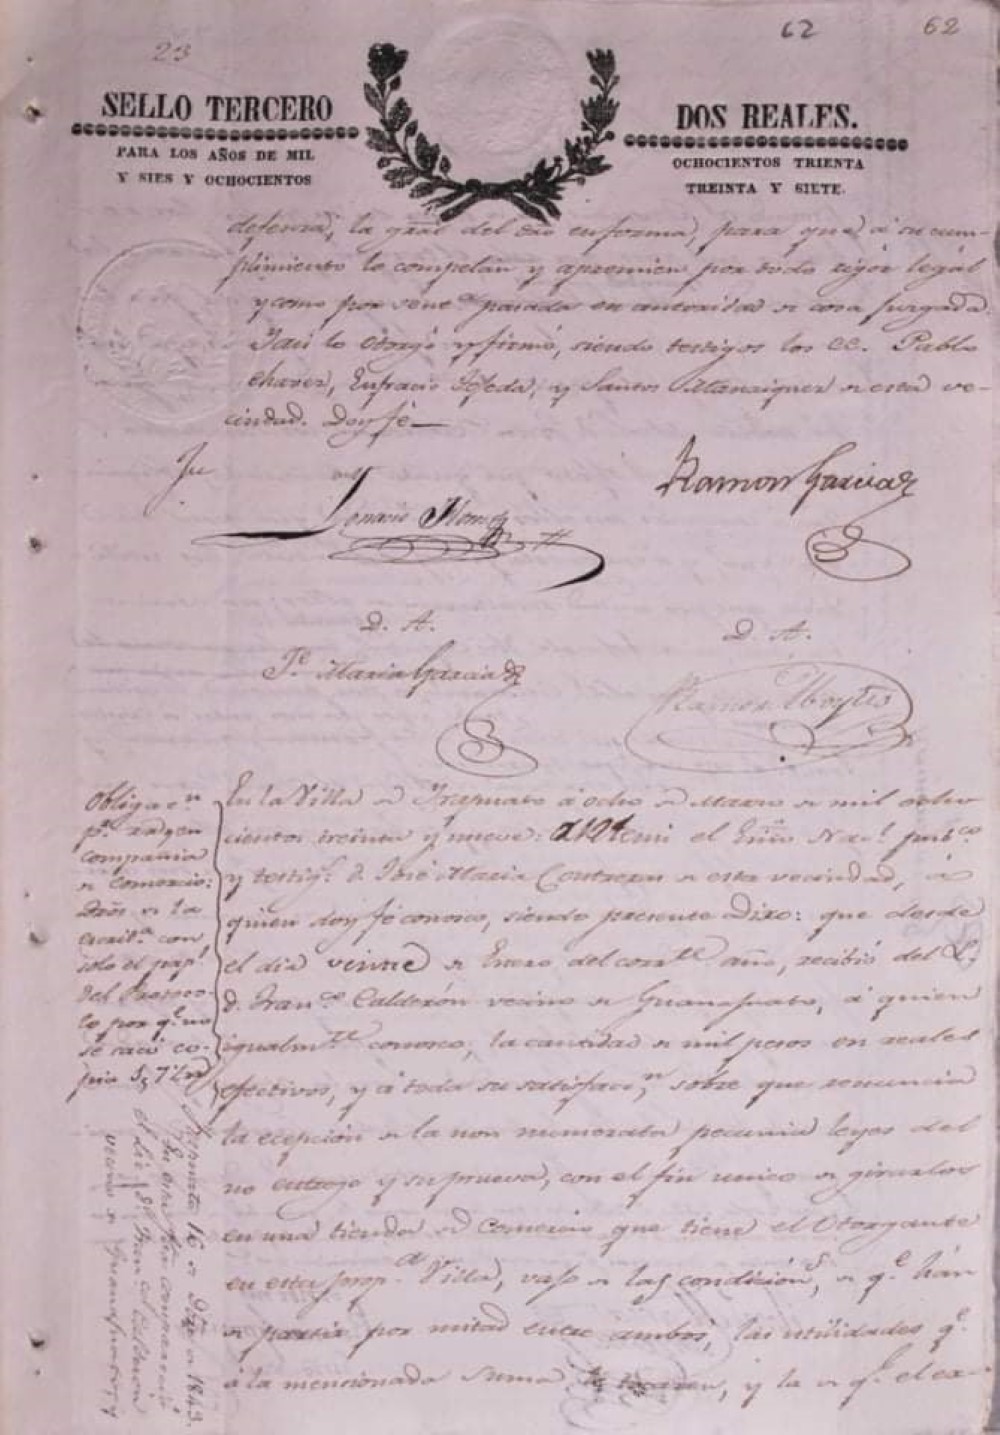 23
62
62
SELLO TERCERO
DOS REALES.
PARA LOS AÑOS DE MIL
Y SIES Y OCHOCIENTOS
OCHOCIENTOS TRIENTA
TREINTA Y SIETE.
defensa, la gral del dro en forma, para que á su cum-
plimiento lo compelan y apremien por todo rigor legal
y como por sent.a pasada en autoridad de cosa juzgada.
Y asi lo otorgó y firmó, siendo testigos los CC. Pablo
Chaves, Eufracio Tejeda, y Santos Manriquez de esta ve-
cindad. Doy fé
Ramon Garcia
Ignacio
D. A.
D. A.
J.e Maria Garcia
Ramon Hoytes
Obligac.n
p.a
compañia
de comercio:
dros de la
escrit.a con
solo el pap.l
del Protoco-
lo por q.e no
se sacó co-
pia
En la Villa de Yrapuato á ocho de Marzo de mil ocho
cientos treinta y nueve: Antemi el Esno Nac.l pub.co
y testig.s D. José Maria Contreras de esta vecindad, á
quien doy fé conosco, siendo presente Dixo: que desde
el dia veinte de Enero del corr.te año, recibió del L.
D. Fran.co Calderón vecino de Guanajuato, á quien
igualm.te conosco, la cantidad de mil pesos en reales
efectivos, y á toda su satisfacc.n sobre que renuncia
la ecepción de la non numerata pecunia leyes del
no entrego y su prueva, con el fin unico de girarlos
en una tienda de Comercio que tiene el Otorgante
en esta prop.a Villa, vajo de las condicións, de q.e hán
de partir por mitad entre ambos, las utilidades q.e
á la mencionada suma le tocaren, y la de q.e el ca-
Yrapuato 16 de Dbre de 1843.
En esta fha compareció
el Lic. D. Fran.co Calderón
vecino de Guanajuato y